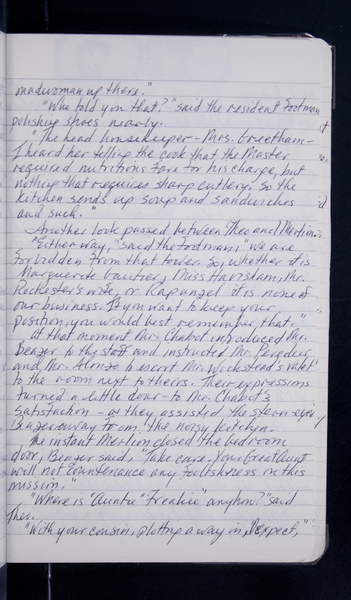 madwoman up there."
"Who told you that?" said the resident footman
polishing shoes nearby.
"The head housekeeper - Mrs. Greetham -
I heard her telling the cook that the Master
required nutritious fare for his charge, but
nothing that requires sharp cutlery. So the
kitchen sends up soup and sandwiches
and such."
Another look passed between Theo and Merlin.
"Either way," said the footman, "we are
forbidden from that tower. So, whether it is
Marguerite Gautier, Miss Havisham, Mr.
Rochester's wife, or Rapunzel it is none of
our business. If you want to keep your
position, you would best remember that."
At that moment Mr. Chabot introduced Mr.
Benzer to the staff and instructed Mr.
and Mr. Alonzo to escort Mr. Wickstend's valet
to the room next to theirs. Their expressions
turned a little dour - to Mr. Chabot's
satisfaction - as they assisted the stern-eyed
Benzer away from the noisy kitchen.
The instant Merlin closed the bedroom
door, Benzer said, "Take care. Your Great Aunt
will not countenance any foolishness in this
mission."
"Where is "Auntie" anyhow?" said
Theo.
"With your cousin, plotting a way in, I expect,"